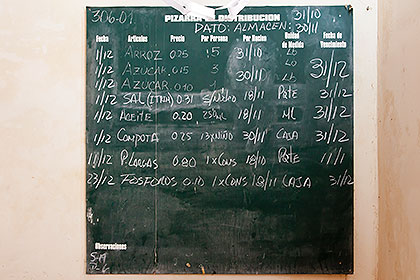 306-01 PIZARRA DE DISTRIBUCION 31/10
DATO: ALMACEN: 30/11
Fecha Articulos Precio Por Persona Por Nucleo Unidad de Medida Fecha de Vencimiento
1/12 ARROZ 0.25 5 31/10 Lb
1/12 AZUCAR 0.15 3 30/11 Lb 31/12
1/12 AZUCAR 0.10 Lb
1/12 SAL (ITRA) 0.31 S/Nucleo 18/11 Pqte 31/12
1/12 ACEITE 0.20 250ML 18/11 ML 31/12
1/12 COMPOTA 0.25 13xNIÑO 30/11 CAJA 31/12
11/12 P. LARGAS 0.80 1xCons 18/10 Pqte 11/1
23/12 FOSFOROS 0.10 1xCons 18/11 CAJA 31/12
Observaciones